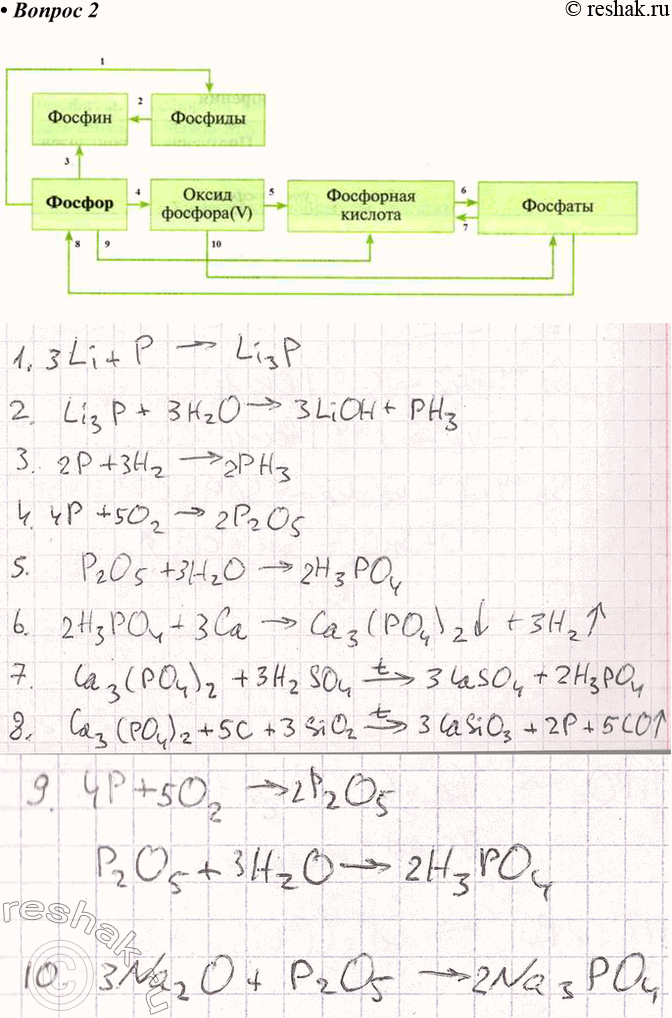 • Вопрос 2
© reshak.ru
1
Фосфин
2
Фосфиды
3
Фосфор
4
Оксид
фосфора(V)
5
Фосфорная
кислота
6
7
Фосфаты
8
9
10
1. 3Li + P → Li₃P
2. Li₃P + 3H₂O → 3LiOH + PH₃
3. 2P + 3H₂ → 2PH₃
4. 4P + 5O₂ → 2P₂O₅
5. P₂O₅ + 3H₂O → 2H₃PO₄
6. 2H₃PO₄ + 3Ca → Ca₃(PO₄)₂↓ + 3H₂↑
7. Ca₃(PO₄)₂ + 3H₂SO₄ →t 3CaSO₄ + 2H₃PO₄
8. Ca₃(PO₄)₂ + 5C + 3SiO₂ →t 3CaSiO₃ + 2P + 5CO↑
9. 4P + 5O₂ → 2P₂O₅
P₂O₅ + 3H₂O → 2H₃PO₄
reshak.ru
10. 3Na₂O + P₂O₅ → 2Na₃PO₄